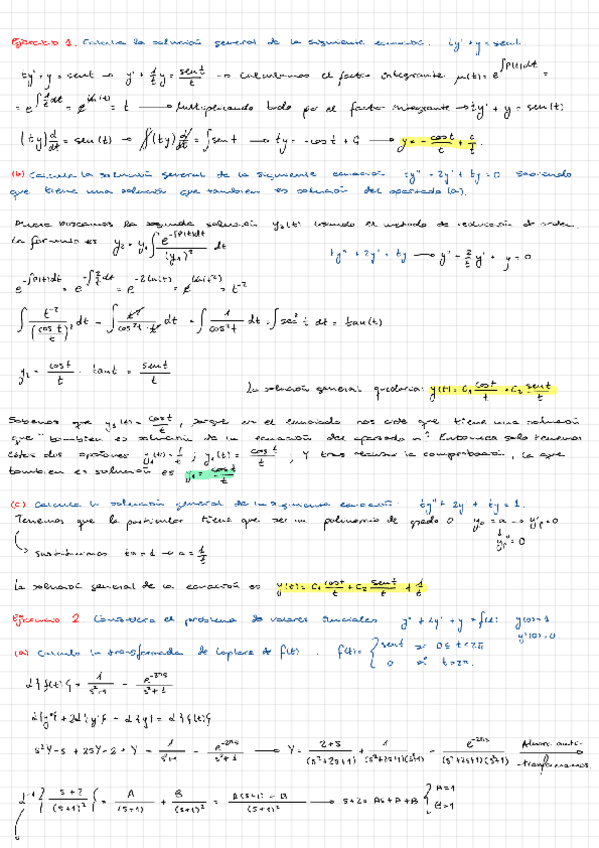 Ejercicio 1. Calcula la solución general de la siguiente ecuación. ty' + y = sent
ty' + y = sent → y' + 1/t y = sent/t → calculamos el factor integrante μ(t) = e^∫P(t)dt =
= e^∫1/t dt = e^ln(t) = t → Multiplicando todo por el factor integrante → ty' + y = sen(t)
(ty) d/dt = sen(t) → ∫(ty) d/dt = ∫sent → ty = -cost + C → y = -cost/t + C/t.
(b) Calcula la solución general de la siguiente ecuación ty'' + 2y' + ty = 0 sabiendo
que tiene una solución que también es solución del apartado (a).
buscamos la segunda solución y2(t) usando el método de reducción de orden.
La fórmula es y2 = y1 ∫ e^-∫P(t)dt / (y1)² dt
ty'' + 2y' + ty → y'' + 2/t y' + y = 0
e^-∫P(t)dt = e^-∫2/t dt = e^-2ln(t) = = t^-2
∫ t^-2 / (cost/t)² dt = dt = ∫ 1/cos²t dt = ∫sec² t dt = tan(t)
y2 = cost/t · tant = sent/t
La solución general quedaría: y(t) = C1 cost/t + C2 sent/t
Sabemos que y1(t) = cost/t, porque en el enunciado nos dice que tiene una solución
que "también es solución de la ecuación del apartado a". Entonces solo tenemos
estas dos opciones y1(t) = 1/t ; y1(t) = cost/t, Y tras realizar la comprobación, la que
también es solución es y1 = cost/t
(c) Calcula la solución general de la siguiente ecuación ty'' + 2y' + ty = 1.
Tenemos que la particular tiene que ser un polinomio de grado 0 yp = a → y'p = 0
y''p = 0
sustituimos ta = 1 → a = 1/t
La solución general de la ecuación es y(t) = C1 cost/t + C2 sent/t + 1/t
Ejercicio 2 Considera el problema de valores iniciales y'' + 2y' + y = f(t) y(0) = 1
y'(0) = 0
(a) Calcula la transformada de Laplace de f(t). f(t) = { sent si 0 ≤ t < 2π
0 si t ≥ 2π.
L{f(t)} = 1/(s²+1) - e^-2πs/(s²+1)
L{y''} + 2L{y'} + L{y} = L{f(t)}
s²Y - s + 2sY - 2 + Y = 1/(s²+1) - e^-2πs/(s²+1) → Y = (2+s)/(s²+2s+1) + 1/(s²+2s+1)(s²+1) - e^-2πs/(s²+2s+1)(s²+1) Ahora anti-
-transformamos.
L^-1 { (s+2)/(s+1)² } = A/(s+1) + B/(s+1)² = (A(s+1) + B)/(s+1)² → s+2 = As + A + B { A=1
B=1